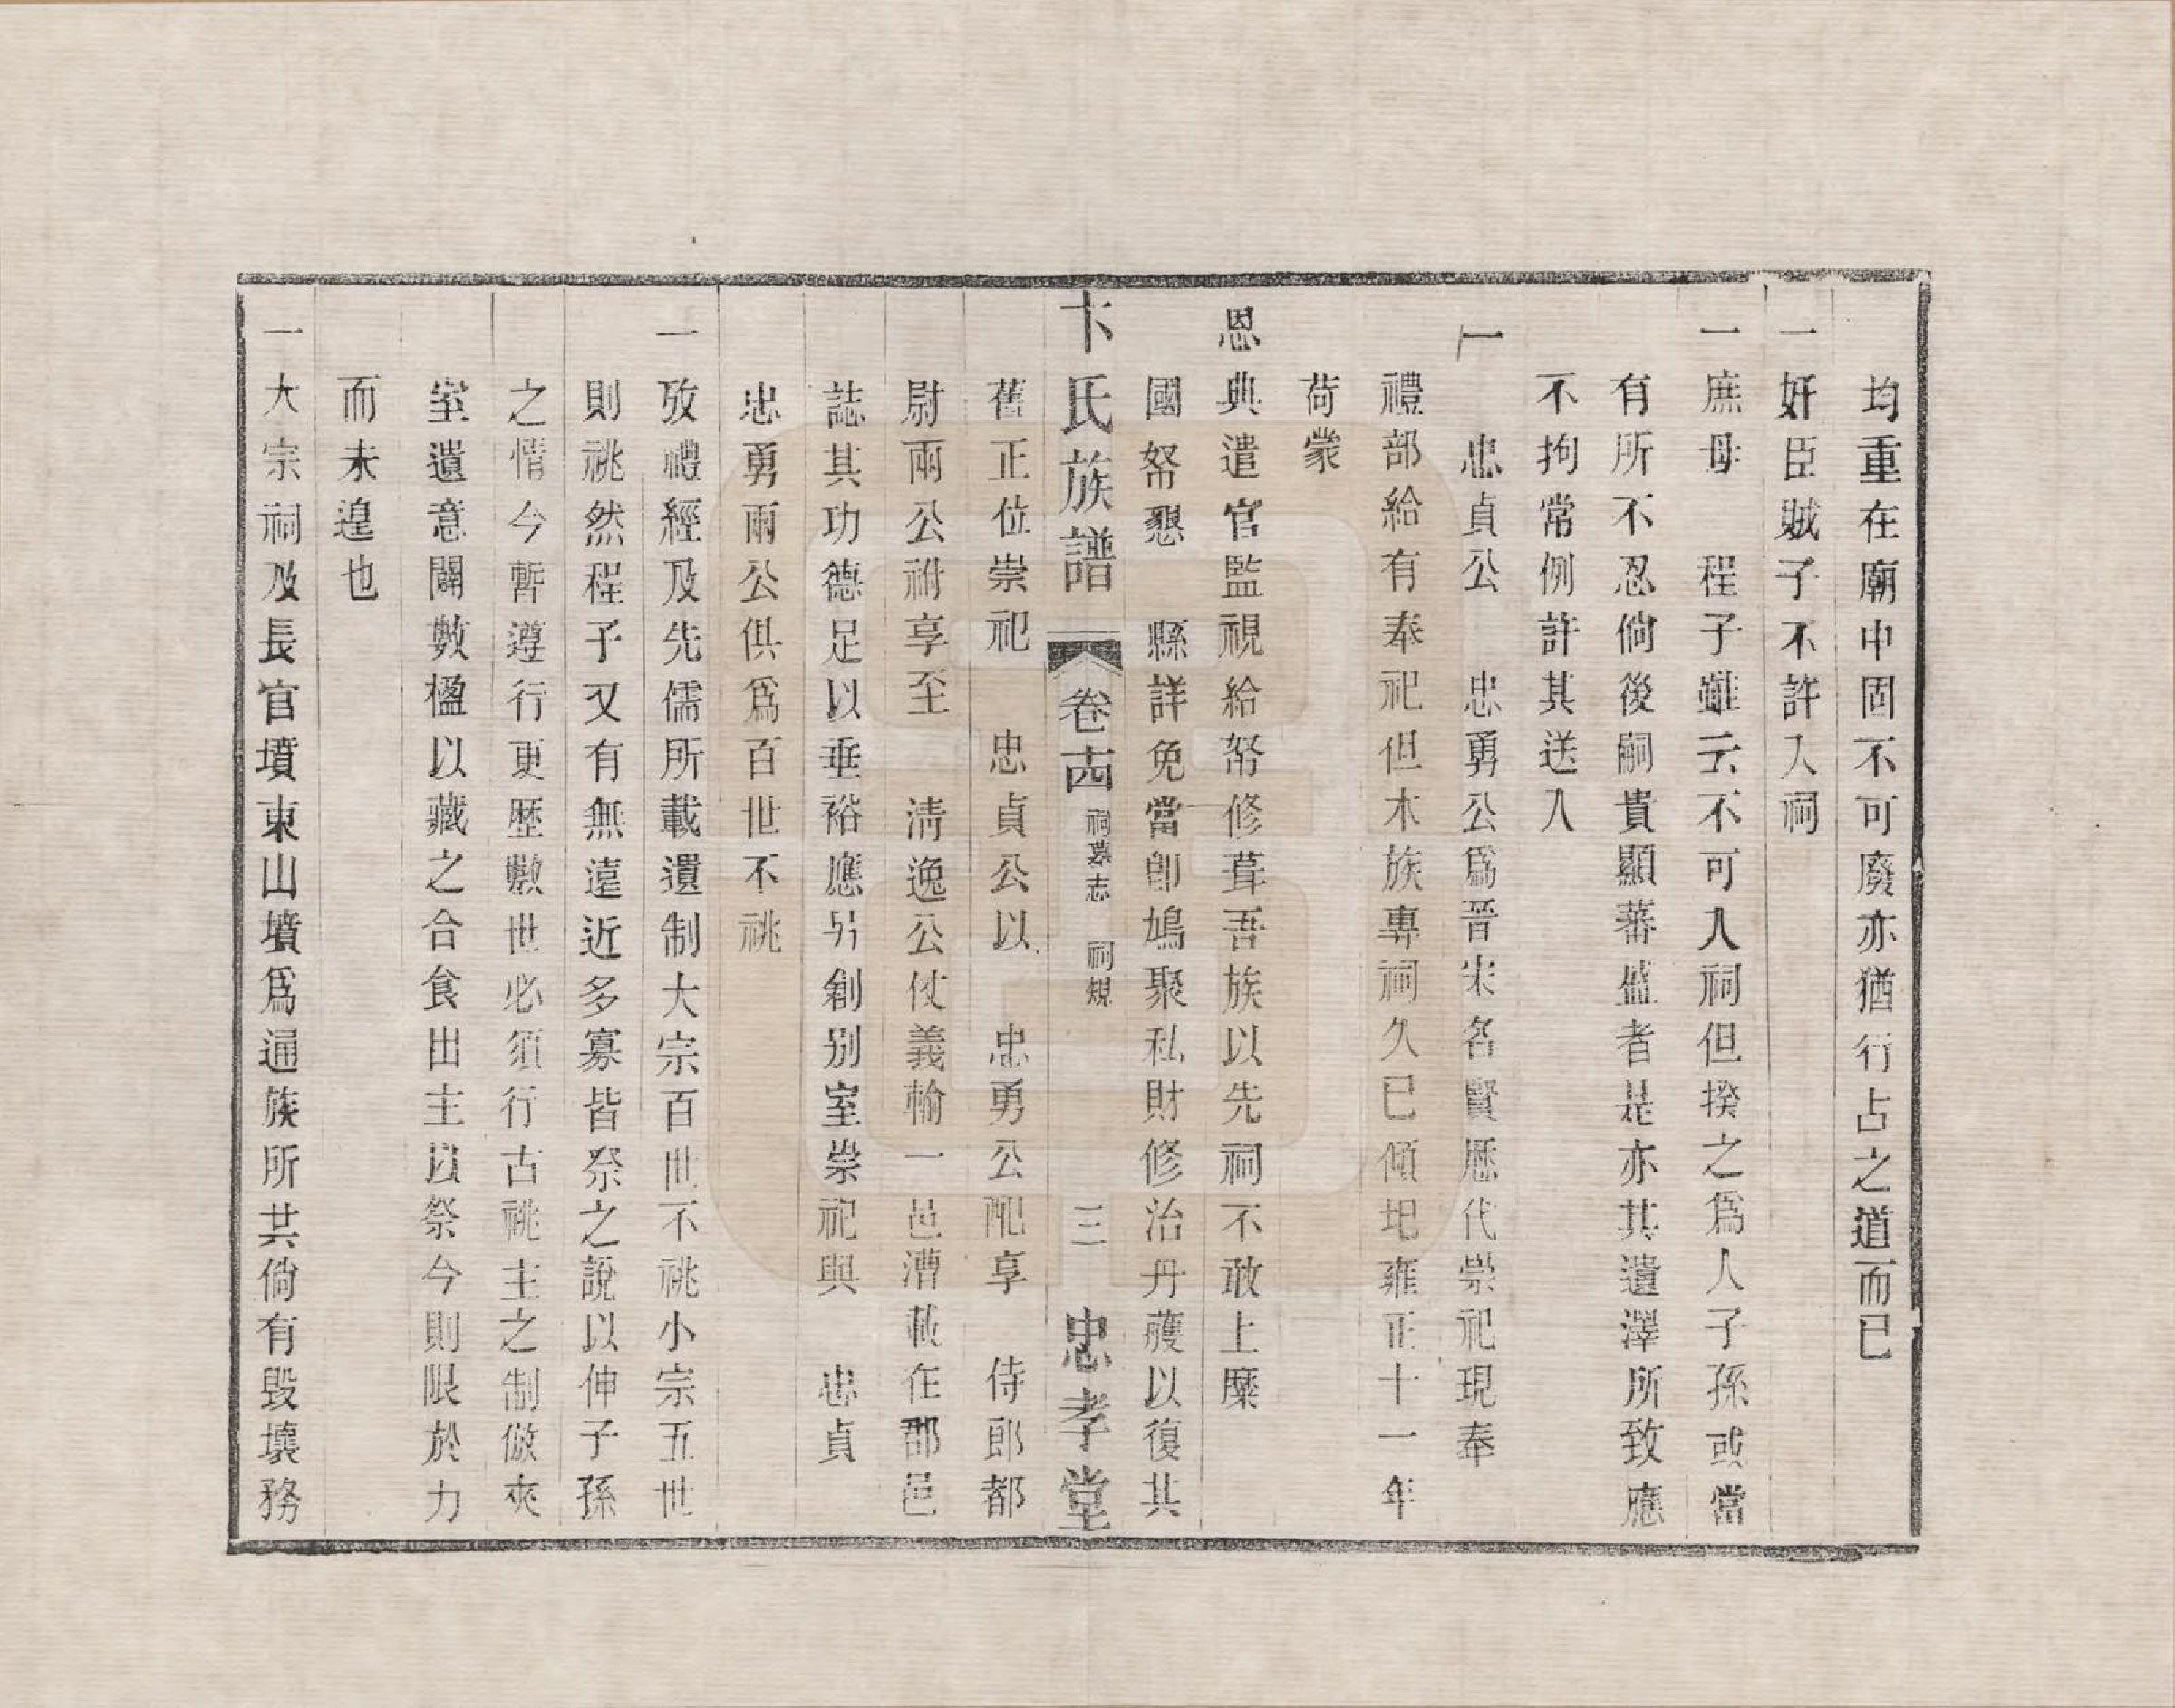 均重在廟中固不可廢亦猶行占之道而已
一奸臣賊子不許入祠
一庶母　程子雖云不可入祠但揆之爲人子孫或當
有所不忍倘後嗣貴顯蕃盛者是亦其遺澤所致應
不拘常例許其送入
一　忠貞公　忠勇公爲晉宋名賢歷代崇祀現奉
禮部給有奉祀但木族專祠久已傾圯雍正十一年
荷蒙
恩典遣官監視給帑修葺吾族以先祠不敢上糜
國帑懇　縣詳免當卽鳩聚私財修治丹雘以復其
卞氏族譜　卷十四　祠墓志　祠規　三　忠孝堂
舊正位崇祀　忠貞公以　忠勇公配享　侍郎都
尉兩公祔享至　清逸公仗義輸一邑漕載在郡邑
誌其功德足以垂裕應另創别室崇祀與　忠貞
忠勇兩公俱爲百世不祧
一攷禮經及先儒所載遺制大宗百世不祧小宗五世
則祧然程子又有無遠近多寡皆祭之說以伸子孫
之情今暫遵行更歷數世必須行古祧主之制倣夾
室遺意闢數楹以藏之合食出主以祭今則限於力
而未遑也
一大宗祠及長官墳東山墳爲通族所共倘有毀壞務